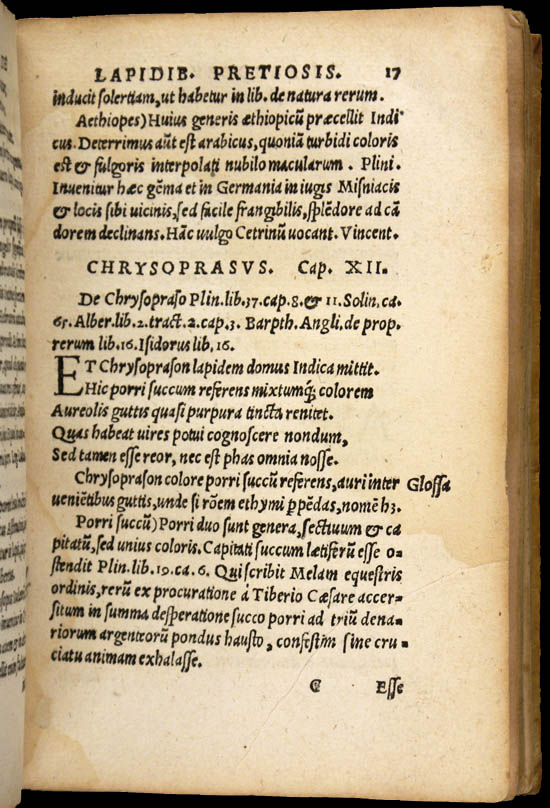 LAPIDIB. PRETIOSIS. 17
inducit solertiam, ut habetur in lib. de natura rerum.
Aethiopes) Huius generis æthiopicũ præcellit Indi-
cus. Deterrimus aũt est arabicus, quoniã turbidi coloris
est & fulgoris interpolati nubilo macularum. Plini.
Inuenitur hæc gẽma et in Germania in iugis Misniacis
& locis sibi uicinis, sed facile frangibilis, splẽdore ad cã
dorem declinans. Hãc uulgo Cetrinũ uocant. Vincent.
CHRYSOPRASVS. Cap. XII.
De Chrysopraso Plin. lib. 37. cap. 8. & 11. Solin. ca.
65. Alber. lib. 2. tract. 2. cap. 3. Barpth. Angli. de prop.
rerum lib. 16. Isidorus lib. 16.
ET Chrysoprason lapidem domus Indica mittit.
Hic porri succum referens mixtumq; colorem
Aureolis guttis quasi purpura tincta renitet.
Quas habeat uires potui cognoscere nondum,
Sed tamen esse reor, nec est phas omnia nosse.
Chrysoprason colore porri succũ referens, auri inter Glossa
ueniẽtibus guttis, unde si rõem ethymi ppẽdas, nomẽ hȝ.
Porri succũ) Porri duo sunt genera, sectiuum & ca
pitatũ, sed unius coloris. Capitati succum lætiferũ esse o-
stendit Plin. lib. 19. ca. 6. Qui scribit Melam equestris
ordinis, rerũ ex procuratione á Tiberio Cæsare accer-
situm in summa desperatione succo porri ad triũ dena-
riorum argenteorũ pondus hausto, confestim sine cru-
ciatu animam exhalasse.
C Esse